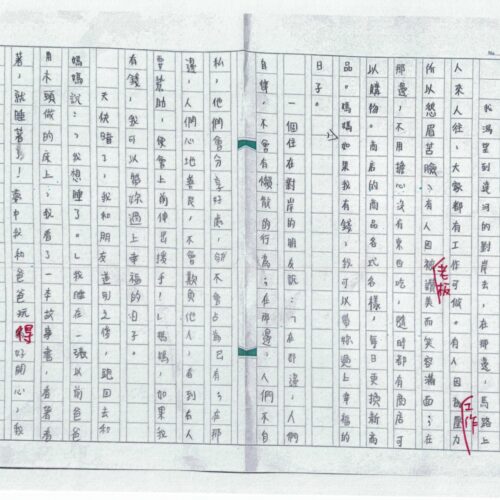 我渴望到達河的對岸去,在那邊,馬路上
人來人往,大家都有工作可做。有人因為工作壓力
所以愁眉苦臉;有人因被老板讚美而笑容滿面;在
那邊,不用擔心沒有東西吃,隨時都有商店可
以購物。商店的商品各式各樣,每日更換新商
品。媽媽如果我有錢,我可以帶妳過上幸福的
日子。
一個住在對岸的朋友說:「在那邊,人們
自律,不會有懶散的行為;在那邊,人們不自
私,他們會分享好處,卻不會占為己有;在那
邊,人們心地善良,不會欺負他人,看到有人
要幫助,便會上前伸出援手!」媽媽,如果我
有錢,我可以帶妳過上幸福的日子。
天快暗了,我和朋友道別之後,跑回去和
媽媽說:「我想睡了。」我睡在一張以前爸爸
用木頭做的床上,我看了一本故事書,看著看
著,就睡著了!夢中我和爸爸玩得好開心,我